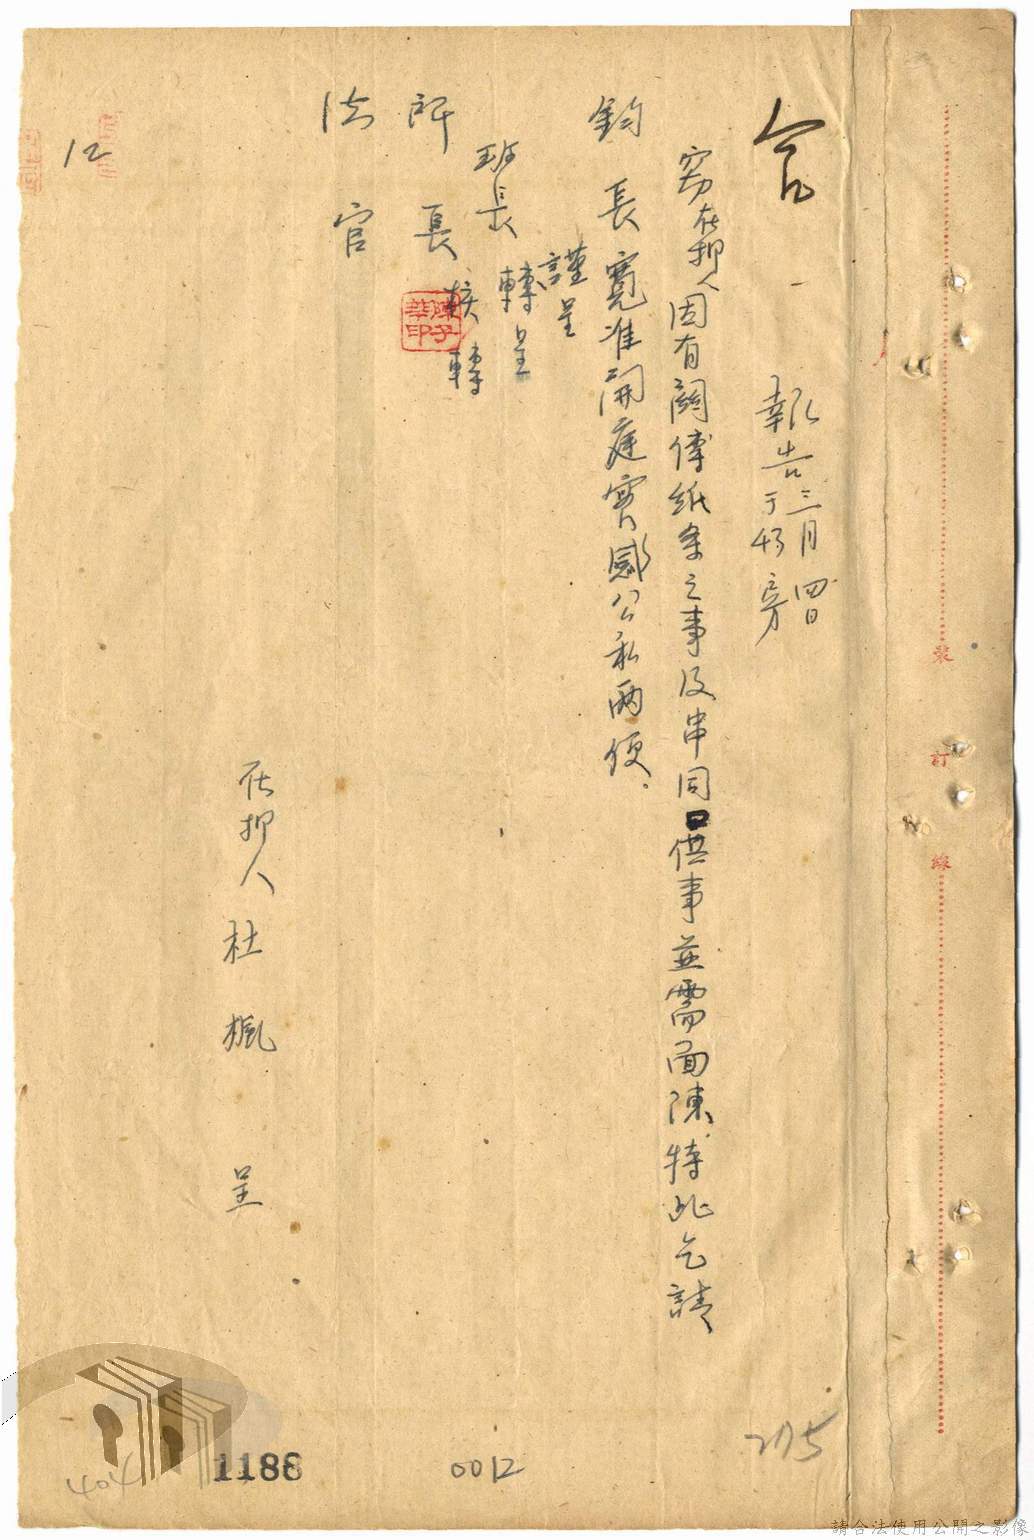 報告 三月四日
于43房
竊在押人因有關傳紙条之事及串同口供事並需面陳特此乞請
鈞長寬准開庭實感公私兩便。
謹呈
班長轉呈
所長核轉
法官
陳子華印
在押人杜楓 呈
12
裝訂線
275
0012
1188
404
請合法使用公開之影像